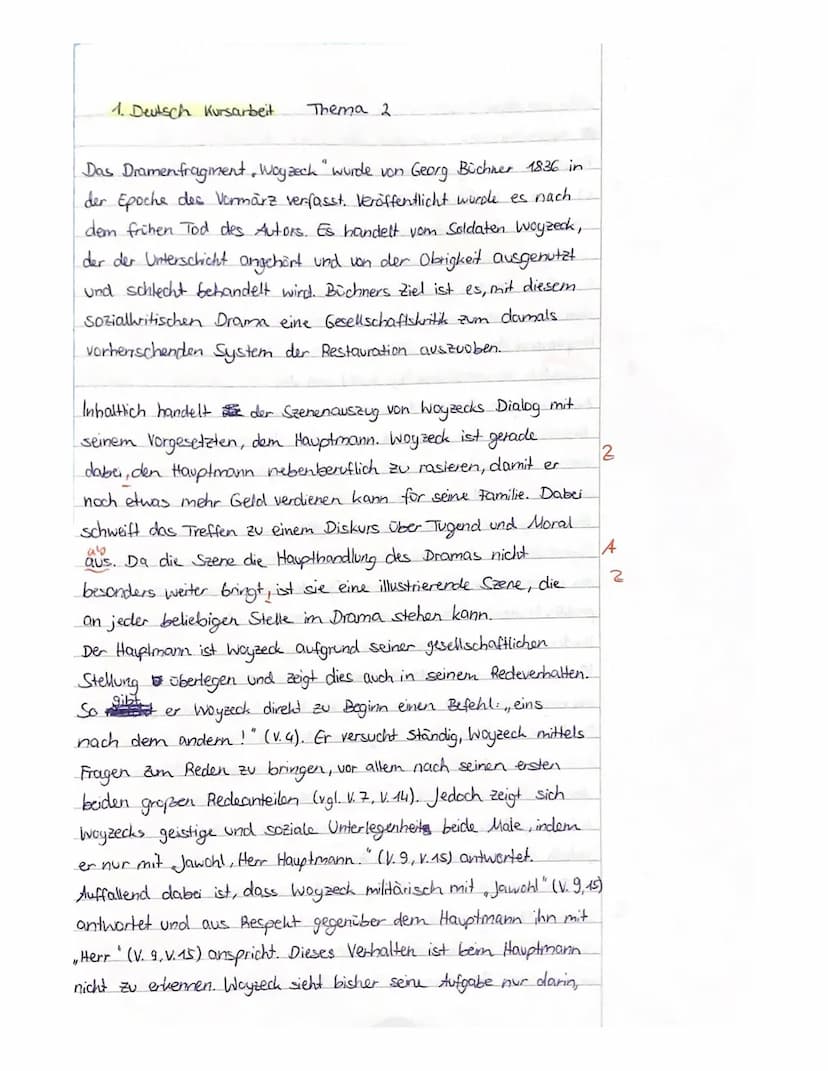 1. Deutsch Kursarbeit Thema 2
Das Dramenfragment „Woyzeck" wurde von Georg Büchner 1836 in
der Epoche des Vormärz verfasst. Veröffentlicht wurde es nach
dem frühen Tod des Autors. Es handelt vom Soldaten Woyzeck,
der der Unterschicht angehört und von der Obrigkeit ausgenutzt
und schlecht behandelt wird. Büchners Ziel ist es, mit diesem
sozialkritischen Drama eine Gesellschaftskritik zum damals
vorherrschenden System der Restauration auszuüben.
Inhaltlich handelt der Szenenauszug von Woyzecks Dialog mit
seinem Vorgesetzten, dem Hauptmann. Woyzeck ist gerade
dabei, den Hauptmann nebenberuflich zu rasieren, damit er
2
noch etwas mehr Geld verdienen kann für seine Familie. Dabei
schweift das Treffen zu einem Diskurs über Tugend und Moral
ab
aus. Da die Szene die Haupthandlung des Dramas nicht
A
besonders weiter bringt, ist sie eine illustrierende Szene, die
2
an jeder beliebigen Stelle im Drama stehen kann.
Der Hauptmann ist Woyzeck aufgrund seiner gesellschaftlichen
Stellung überlegen und zeigt dies auch in seinem Redeverhalten.
So gibt er Woyzeck direkt zu Beginn einen Befehl: „eins
nach dem andern!" (V. 4). Er versucht ständig, Woyzeck mittels
Fragen zum Reden zu bringen, vor allem nach seinen ersten
beiden großen Redeanteilen (vgl. V. 7, V. 14). Jedoch zeigt sich
Woyzecks geistige und soziale Unterlegenheit beide Male, indem
er nur mit „Jawohl, Herr Hauptmann." (V. 9, V. 15) antwortet.
Auffallend dabei ist, dass Woyzeck militärisch mit „Jawohl" (V. 9, 15)
antwortet und aus Respekt gegenüber dem Hauptmann ihn mit
„Herr" (V. 9, V. 15) anspricht. Dieses Verhalten ist beim Hauptmann
nicht zu erkennen. Woyzeck sieht bisher seine Aufgabe nur darin,